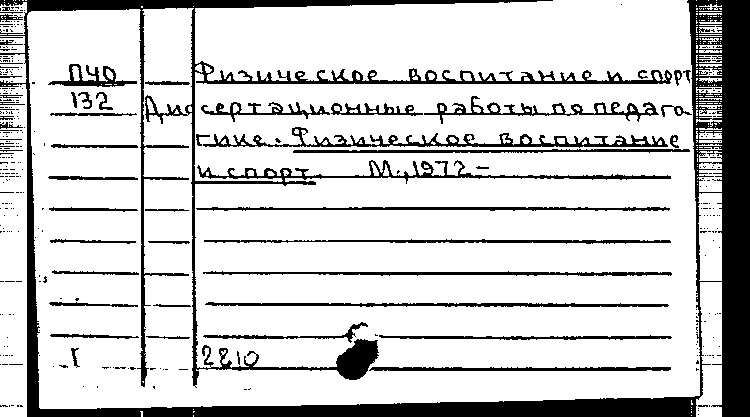 П40 Физическое воспитание и спорт
132 Диссертационные работы по педаго
гике. Физическое воспитание
и спорт. М., 1972 –
Г 2810